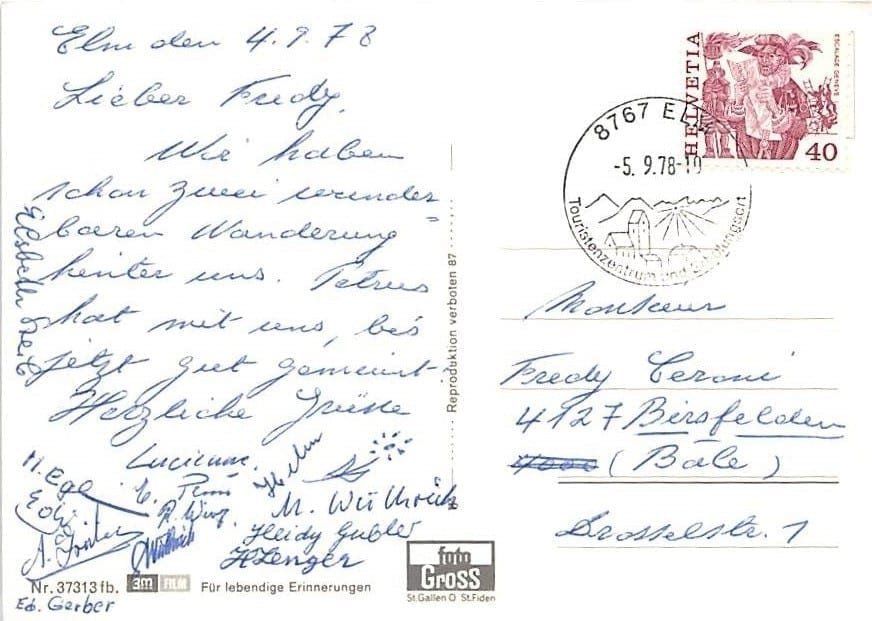 Elm den 4.9.78
Lieber Fredy,
Wir haben
schon zwei wunder-
baren Wanderung
hinter uns. Petrus
hat mit uns, bis
jetzt gut gemeint.
Herzliche Grüsse
Elsbeth
Lucienne.
M. Egl
Edi
Helm
M. Wüthrich
Heidy Gubler
H Zenger
Wüthrich
Ed. Gerber
Nr. 37313 fb. 3m FILM Für lebendige Erinnerungen
foto
Gross
St. Gallen O St. Fiden
Reproduktion verboten 87
HELVETIA
ESCALADE GENEVE
40
8767 ELM
-5. 9.78-10
Touristenzentrum und Erholungsort
Monsieur
Fredy Ceroni
4127 Birsfelden
4000 (Bâle)
Drosselstr. 1